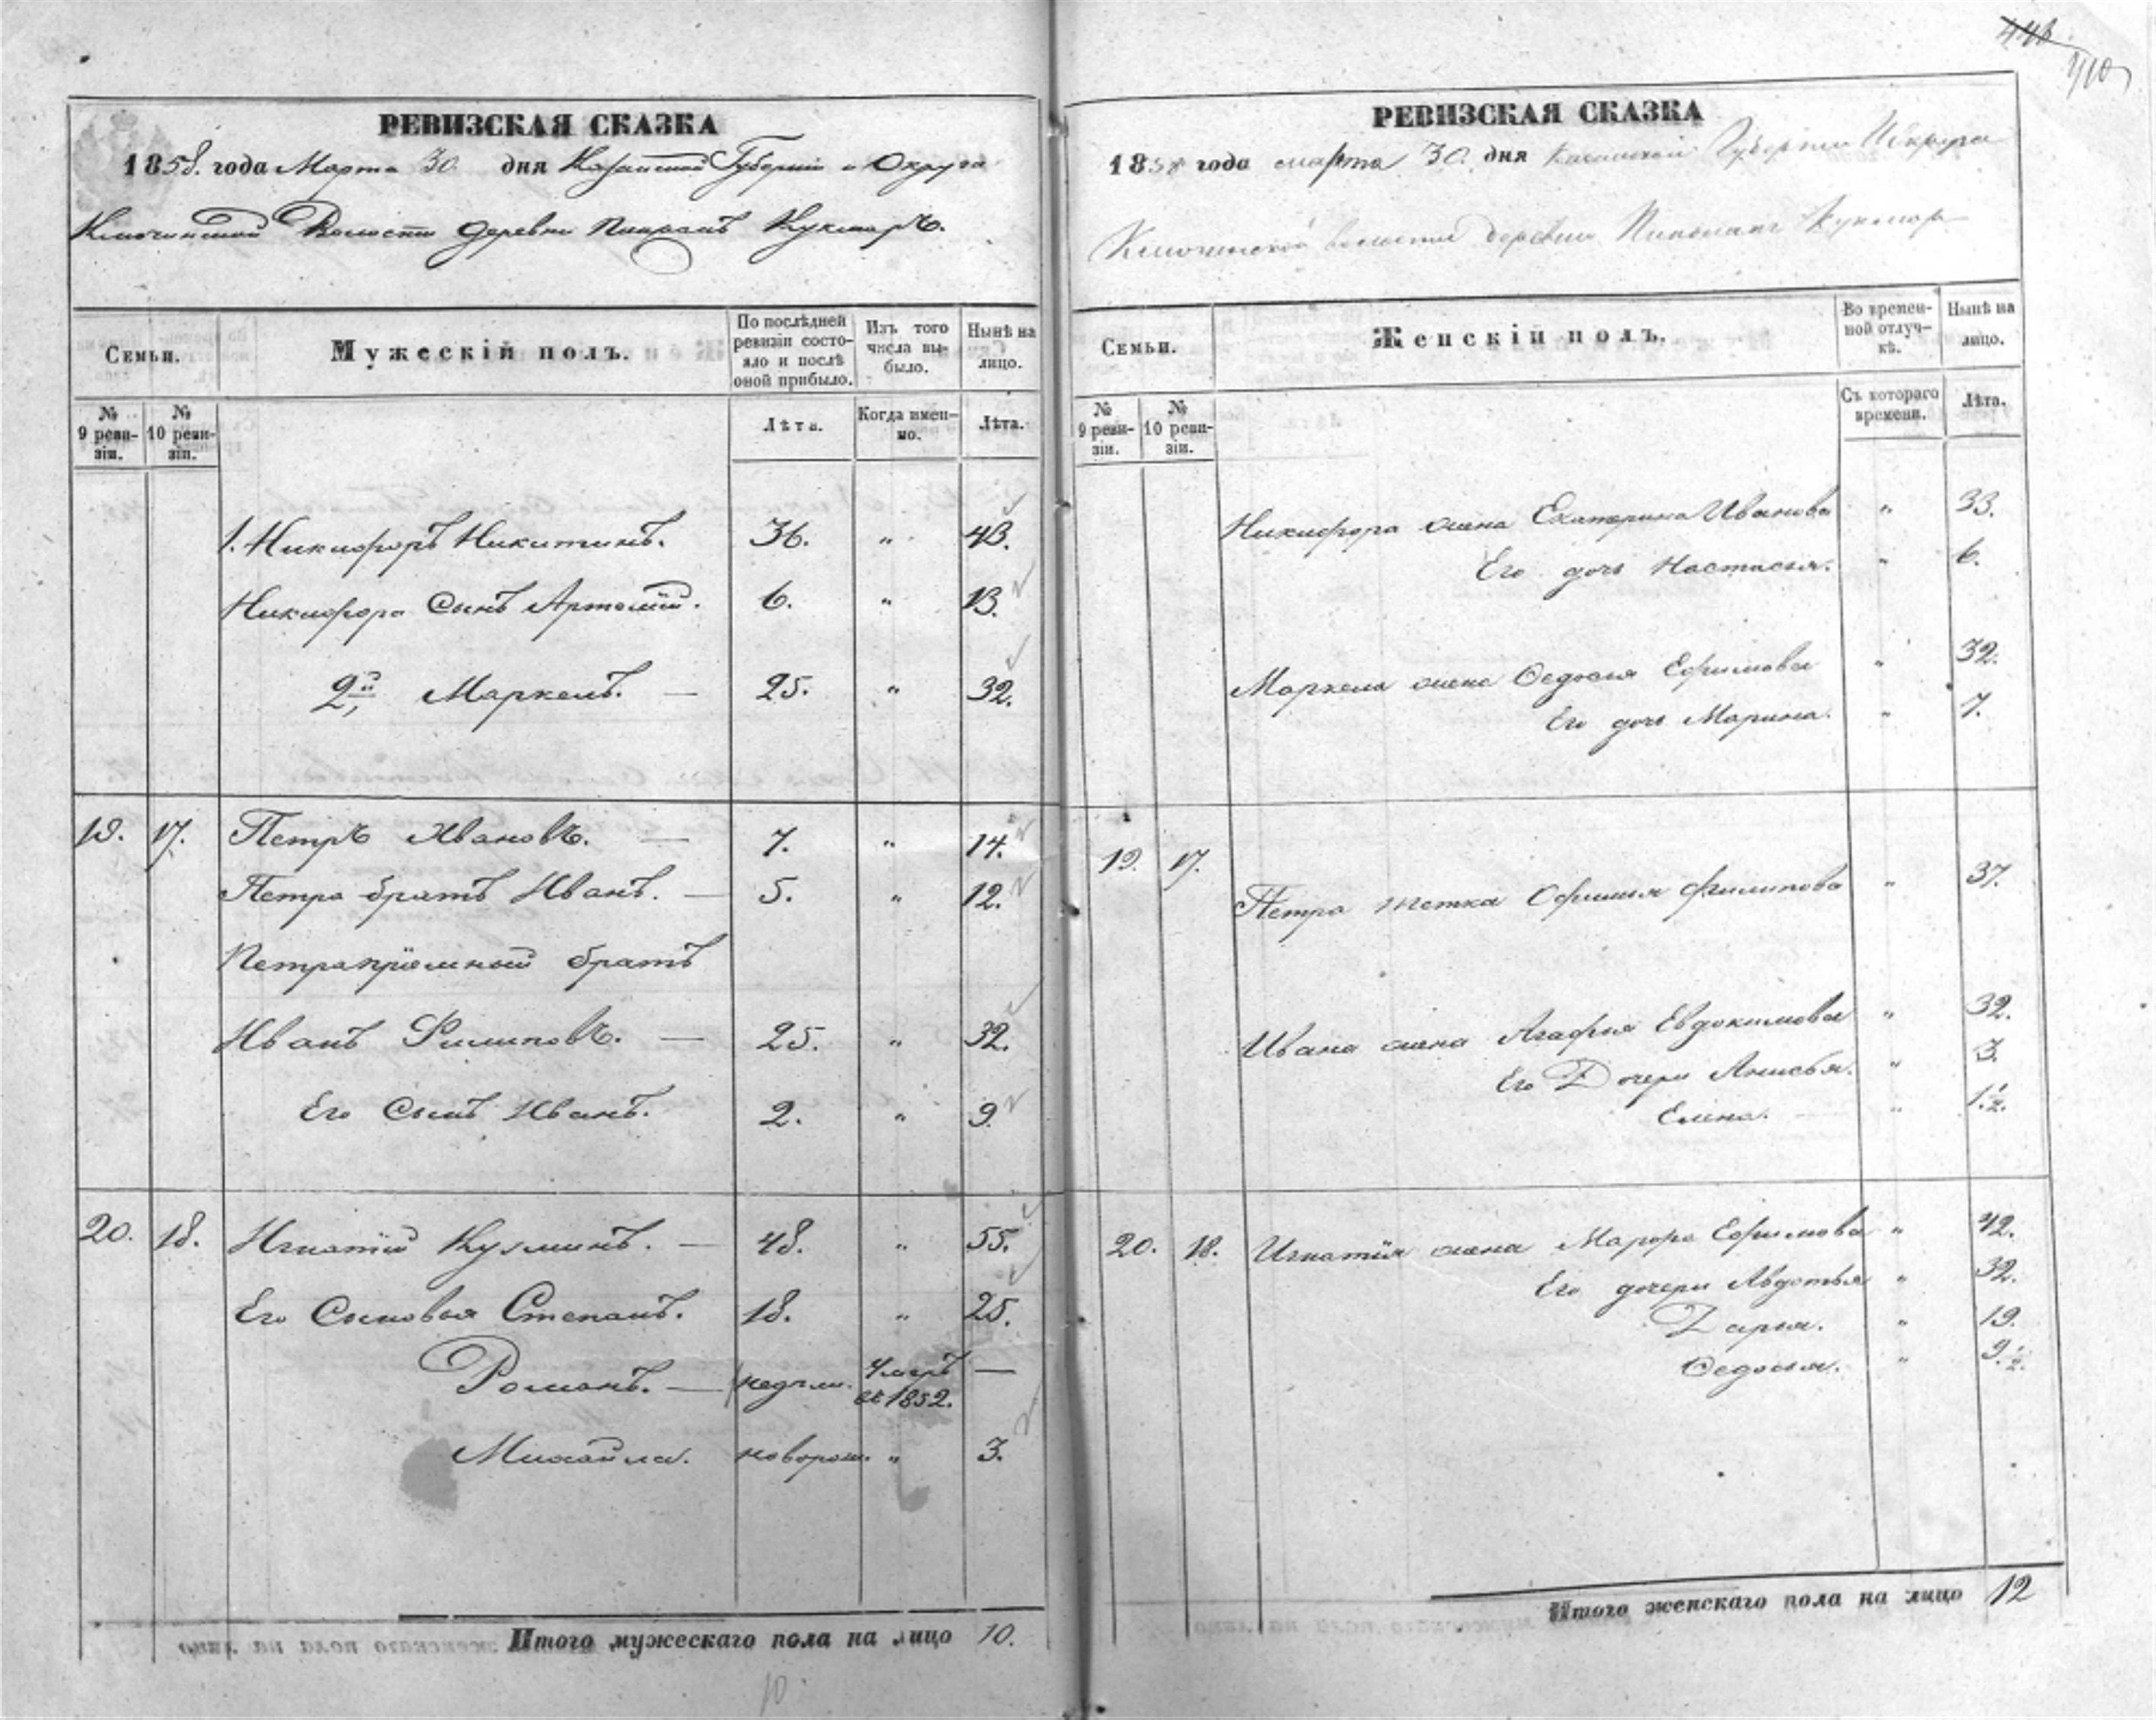 448
410
РЕВИЗСКАЯ СКАЗКА
1858. года Марта 30 дня Казанской Губерніи и Округа
Ключинской Волости деревни Кукморъ.
Семьи.
Мужескій полъ.
По послѣдней ревизіи состояло и послѣ оной прибыло.
Изъ того числа выбыло.
Нынѣ на лицо.
№ 9 ревизіи.
№ 10 ревизіи.
Лѣта.
Когда именно.
Лѣта.
1. Никифоръ Никитинъ. 36. " 43.
Никифора Сынъ Артемій. 6. " 13.
2й, Маркелъ. — 25. " 32.
19. 17. Петръ Ивановъ. — 7. " 14.
Петра братъ Иванъ. — 5. " 12.
Петра пріемный братъ
Иванъ Филиповъ. — 25. " 32.
Его Сынъ Иванъ. 2. " 9
20. 18. Игнатій Кузминъ. — 48. " 55.
Его Сыновья Степанъ. 18. " 25.
Романъ. — недѣли. Умеръ въ 1852. —
Михайла. новорож. " 3.
Итого мужескаго пола на лицо 10.
10
РЕВИЗСКАЯ СКАЗКА
1858 года марта 30. дня Казанской Губерніи И округа
Ключинской волости деревни Кукмор
Семьи.
Женскій полъ.
Во временной отлучкѣ.
Нынѣ на лицо.
№ 9 ревизіи.
№ 10 ревизіи.
Съ котораго времени.
Лѣта.
Никифора жена Екатерина Иванова " 33.
Его дочь Настасья. " 6.
Маркела жена Ѳедосья Ефимова " 32.
Его дочь Марина. " 7.
19. 17. Петра тетка Офимья Филипова " 37.
Ивана жена Агафья Евдокимова " 32.
Его Дочери Анисья. " 3.
Елена. " 1.½.
20. 18. Игнатія жена Марфа Ефимова " 42.
Его дочери Авдотья " 32.
Дарья. " 19.
Ѳедосья. " 9.½.
Итого женскаго пола на лицо 12